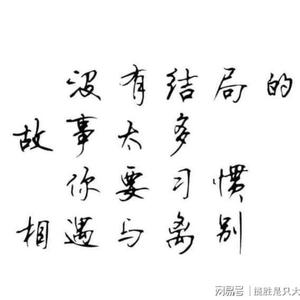 没有结局的
故事太多
你要习惯
相遇与离别
网易号 | 揽胜是只大